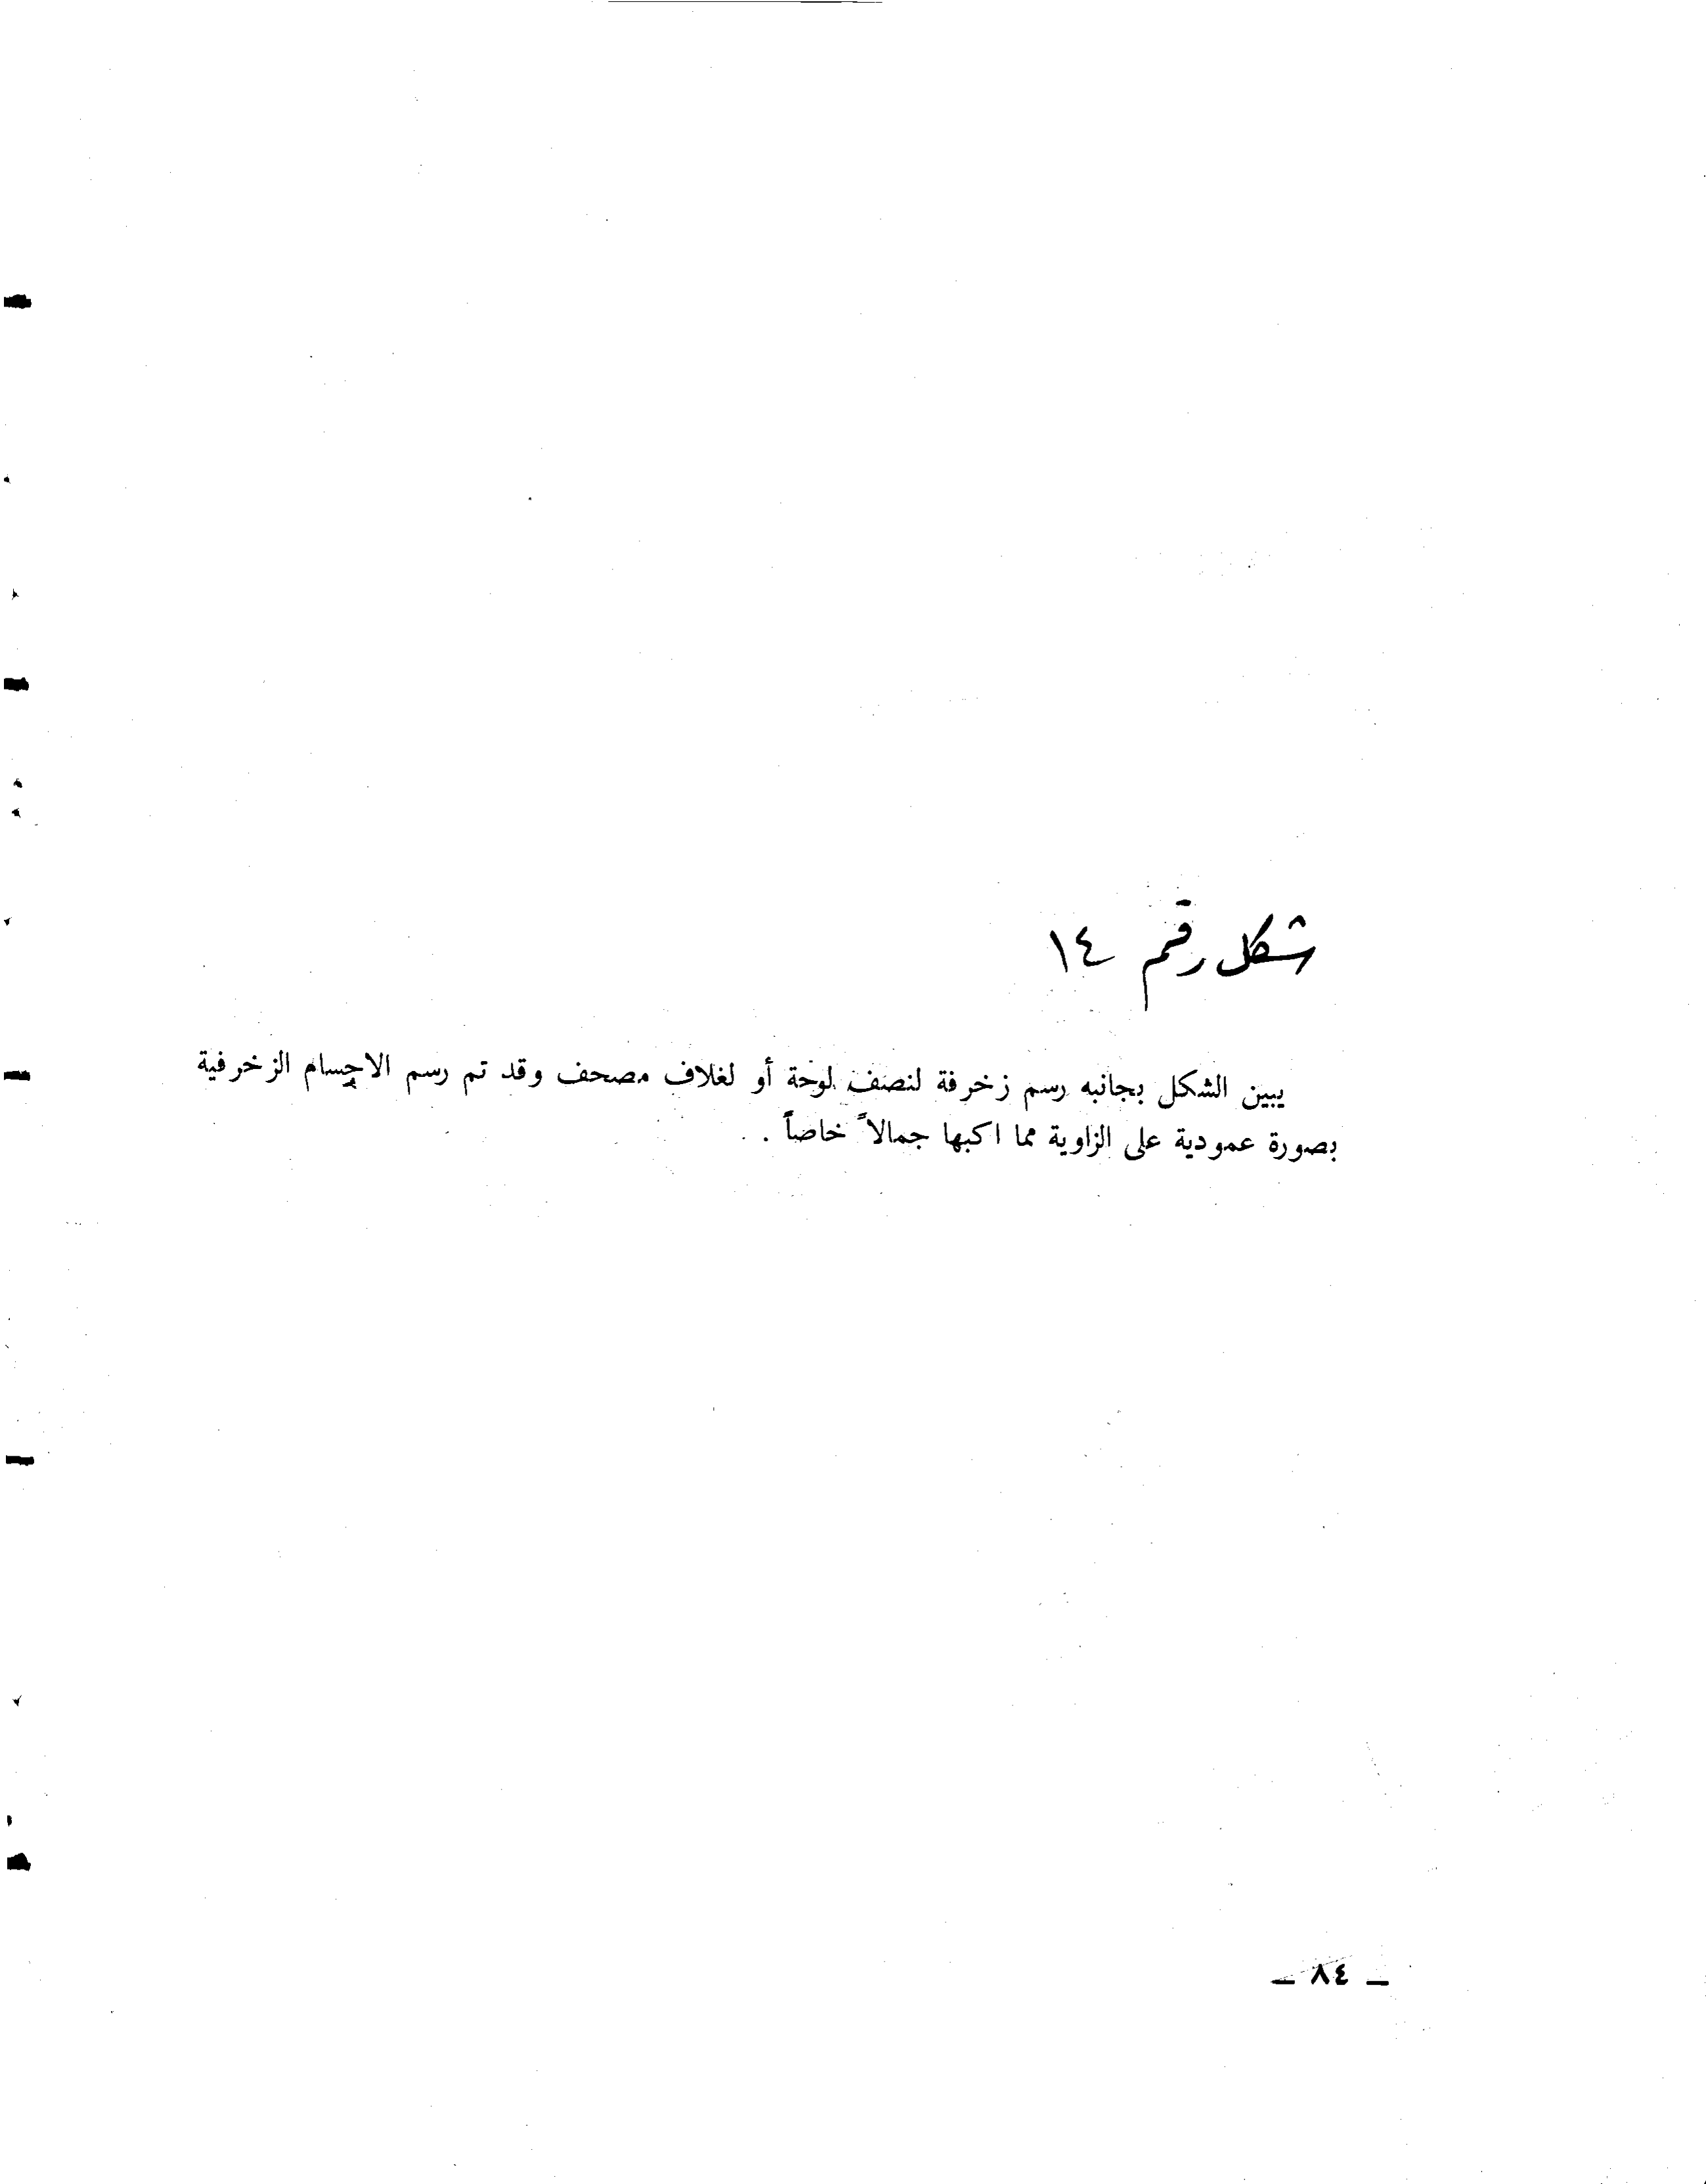 شكل رقم ١٤
يبين الشكل بجانبه رسم زخرفة لنصف لوحة أو لغلاف مصحف وقد تم رسم الاجسام الزخرفية
بصورة عمودية على الزاوية مما اكبها جمالاً خاصاً .
ـ ٨٤ ـ